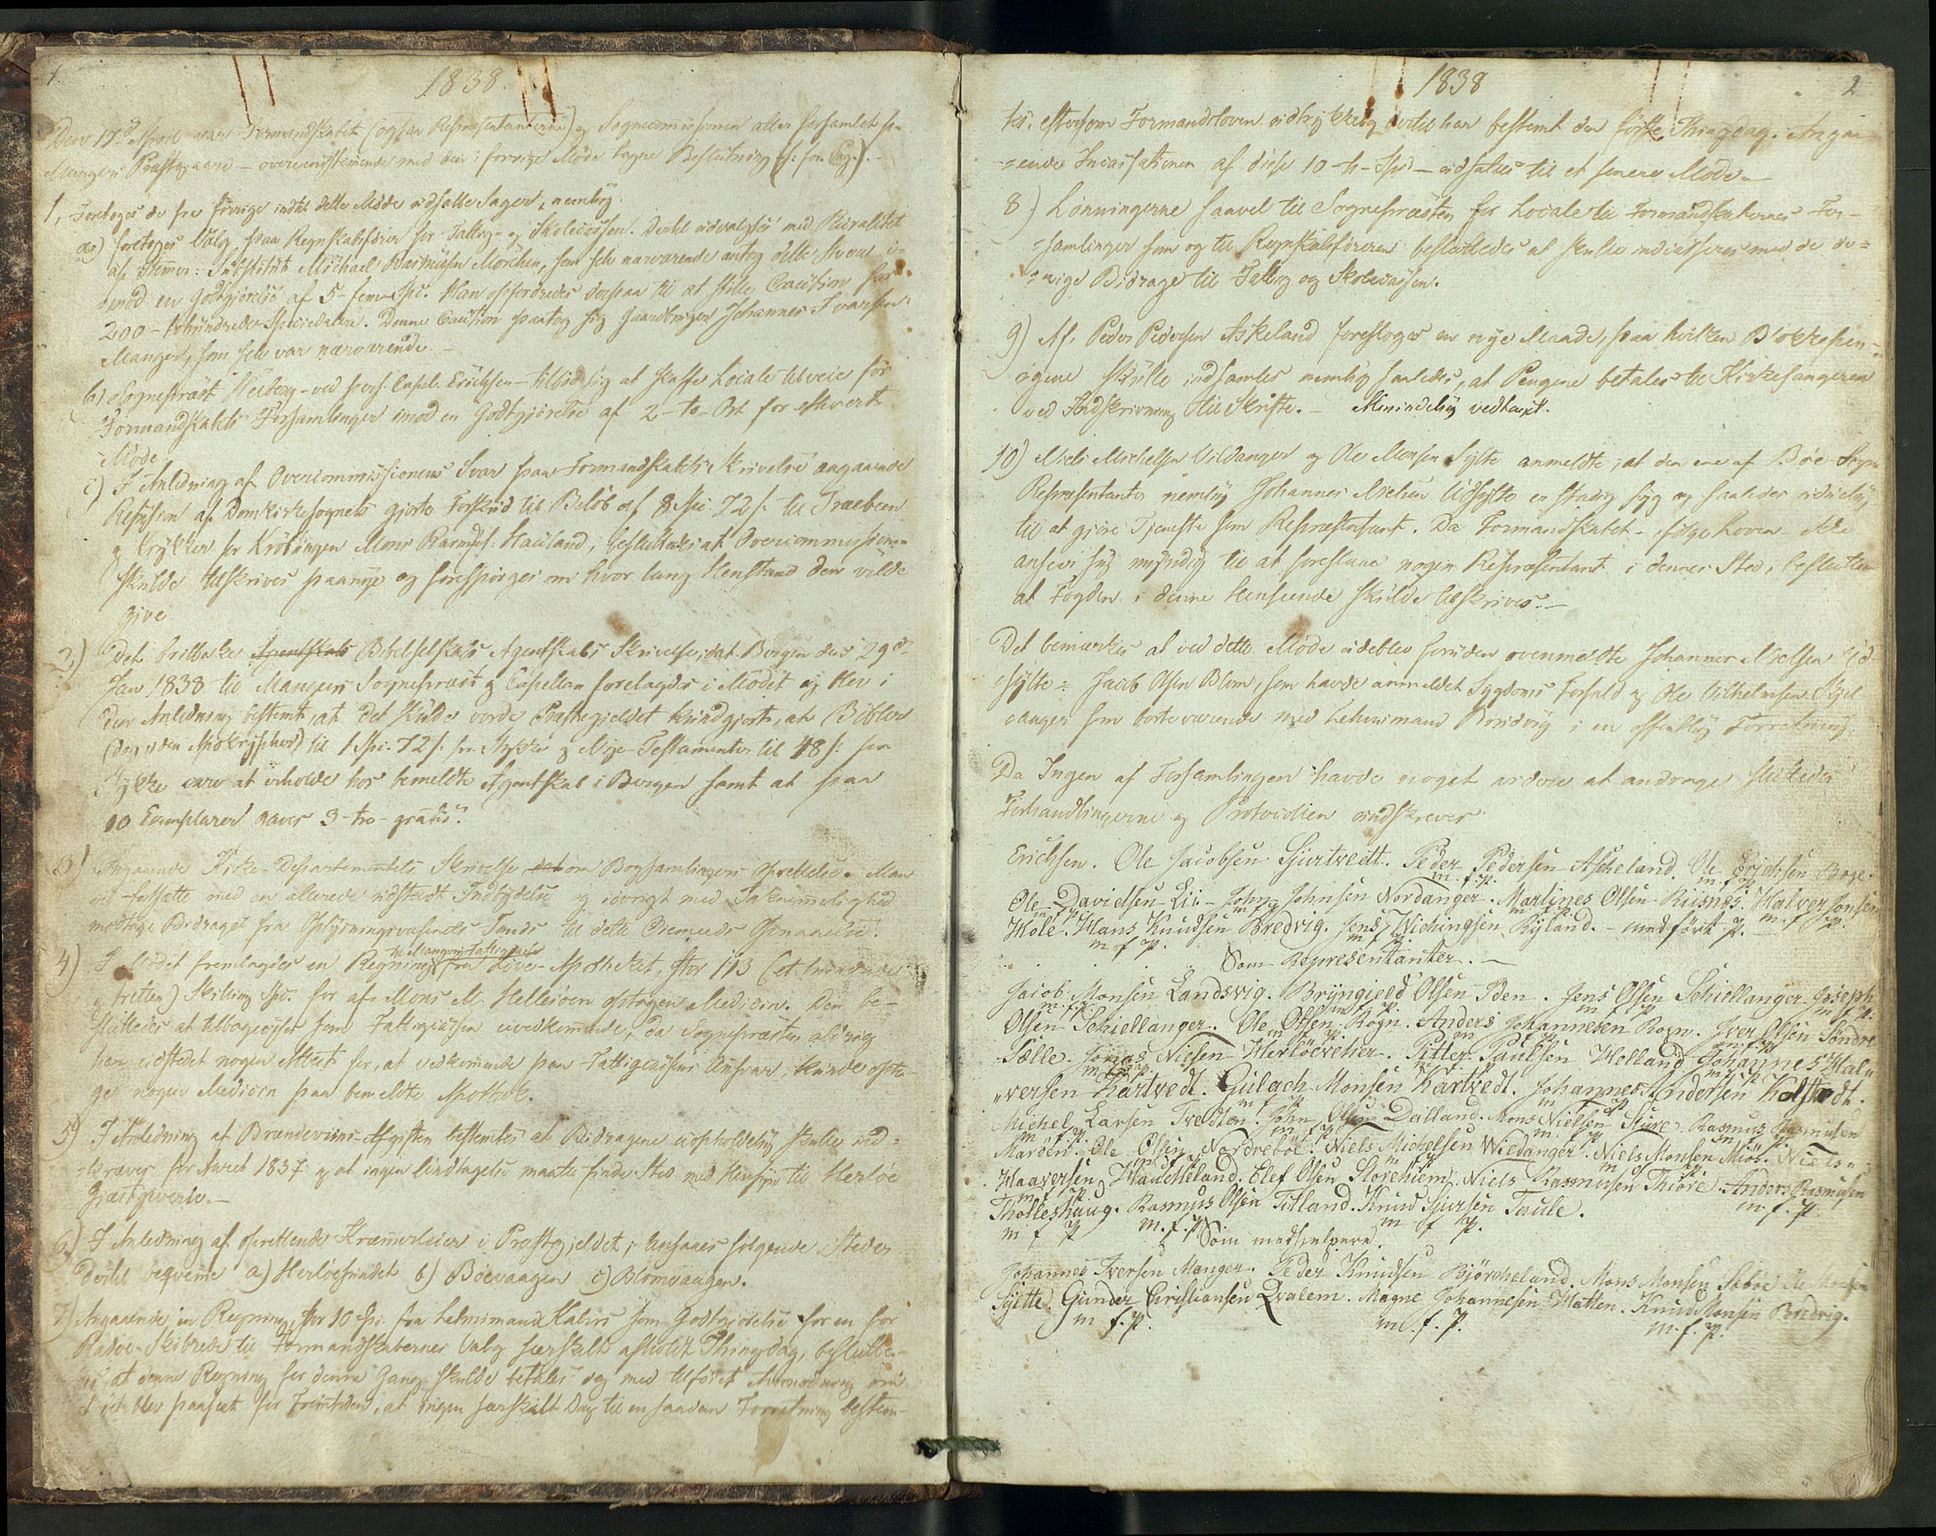 1.
1838.
Den 17d April var Formandskabet (ogsaa Repræsentanterne) og Sognecommissionen atter forsamlet paa
Mangers Præstegaard – overeensstemmende med den i forrige Møde tagne Beslutning
1, Foretoges de fra forrige indtil dette Møde udsatte Sager, nemlig:
a) foretoges Valg paa Regnskabsfører for Fattig- og Skolecassen. Dertil udvalgtes med Pluralitet
af Stemer: Substitut Michael Rasmusen Mörchen, som selv nærværende antog dette Hverv i-
mod en Godtgjörelse af 5 – fem Spd. Han opfordredes derpaa til at stille Caution for
200 – tohundrede Speciedalere. Denne Caution paatog sig Gaardbruger Johannes Ivarsen
Manger, som selv var nærværende. –
b) Sognepræst Heiberg – ved pers. Capel. Erichsen – tilböd sig at skaffe Locale tilveie for
Formandskabets Forsamlinger imod en Godtgjörelse af 2 – to – Ort for ethvert
Møde.
c) I Anledning af Overcommissionens Svar paa Formandskabets Skrivelse angaaende
Refusion af Domkirkesognets gjorte Forskud til Belöb af 8 Spd. 72 s. til Træebeen
og Krykker for Kröblingen Mons Rasmus. Hauland, besluttedes at Overcommissionen
skulde tilskrives paanye og forespörges om hvor lang Henstand den vilde
give.
2,) Det Brittiske Agentskabs Bibelselskabs Agentskabs Skrivelse, dat. Bergen den 29de
Jan 1838 til Mangers Sognepræst og Capellan forelagdes i Mödet og blev i
den Anledning bestemt, at det skulde vorde Præstegjeldet kundgjort, at Bibler
(dog uden Apokrypher) til 1 Spd. 72 s. pr. Stykke og Nye Testamenter til 48 s. pr.
Stykke vare at erholde hos bemeldte Agentskab i Bergen samt at paa
10 Exemplarer gaves 3 – tre – gratis.
3) Angaaende Kirke-Departementets Skrivelse om Bogsamlingers Oprettelse. Man
fortsatte med en allerede udstædt Indbydelse og iövrigt med Taknemmelighed
modtage Bidraget fra Oplysningsvæsenets Fonds til dette Öiemeds Opnaaelse.
til Mangers Fattigcasse
4) I Mödet fremlagdes en Regning fra Löve-Apotheket, stor 113 (et hundrede
og tretten) Skilling Spd. for af Mons M. Hellesöen optagen Medicin. Den be-
sluttedes at tilbagevises som Fattigcassen uvedkommende, da Sognepræsten aldrig
har udstedet nogen Attest for, at vedkommende paa Fattigcassens Ansvar, kunde opta-
ge nogen Medicin paa bemeldte Apothek.
5) I Anledning af Brændeviins-Afgiften bestemtes at Bidragene uopholdelig skulle ind-
kræves for Aaret 1837 og at ingen Undtagelse maatte finde Sted med Hensyn til Herlöe
Gjæstgiverie. –
6) I Anledning af oprettende Kræmmerleier i Præstegjeldet, ansaaes fölgende Steder
dertil beqvemme a) Herlöesundet b) Böevaagen c) Blomvaagen.
7) Angaaende en Regning, stor 10 Spd. fra Lehnsmand Kalvis som Godtgjörelse for en for
Radöe Skibrede til Formandskabernes Valg særskilt afholdt Thingdag, beslutte-
des at denne Regning for denne Gang skulde betales dog med tilföiet Anmodning om
at det blev paaseet for Fremtiden, at ingen særskilt Dag til en saadan Forretning bestem-
2
1838
tes, eftersom Formandsloven udtrykkelig dertil har bestemt den förste Thingdag. Angaa-
-ende Incassationen af disse 10 – ti – Spd. – udsattes til et senere Möde. –
8) Lönningerne saavel til Sognepræsten for Locale til Formandskabernes For-
-samlinger som og til Regnskabsföreren besluttedes at skulle indcasseres med de öv-
-rige Bidrage til Fattig og Skolecassen.
9) Af Peder Pedersen Askeland foresloges en nye Maade, paa hvilken Blokkepen-
gene skulde indsamles nemlig saaledes, at Pengene betales til Kirkesangeren
ved Indskrivning til Skrifte. – Almindelig vedtaget.
10) Niels Michelsen Vildanger og Ole Monsen Sylte anmeldte, at den ene af Böe-Sogns
Repræsentanter nemlig Johannes Nielsen Udsylte er stadig syg og saaledes uduelig
til at gjöre Tjeneste som Repræsentant. Da Formandskabet – ifölge Loven – ikke
ansees sig myndig til at foreslaae nogen Repræsentant i dennes Sted, besluttedes
at Fogden i denne Henseende skulde tilskrives. –
Det bemærkes at ved dette Möde udeblev foruden ovenmeldte Johannes Nielsen Ud-
sylte: Jacob Olsen Blom, som havde anmeldet Sygdoms Forfald og Ole Vilhelmsen Skjel-
anger som bortværende med Lehnsmand Bredvig i en offentlig Forretning.
Da Ingen af Forsamlingen havde noget videre at andrage sluttedes
Forhandlingerne og Protocollen underskreves
Erichsen. Ole Jacobsen Sjurtvedt. Peder Pedersen Ascheland. Ole Erichsen Böge.
m. f. p. m. f. p.
Ole Davidsen Lii – John Johnsen Nordanger. Martines Olsen Riisnes. Halver Jonsen
m f p m f p m. f. p.
Hole. Hans Knudsen Bredvig. Jens Wichingsen Ryland. – med fört P. –
m f p. m f p.
Som Repræsentanter. –
Jacob Monsen Landsvig. Bryngield Olsen Iden. Jens Olsen Schiellanger. Joseph
m f p m f p m f p.
Olsen Schiellanger. Ole Olsen Rogn. Anders Johannesen Rogn. Iver Olsen Söndre
Sætte. Jonas Nielsen Herlöevehr. Petter Paulsen Holland. Johannes Hal-
m f p.
-versen Kartvedt. Gulach Monsen Kartvedt. Johannes Andersen Kolstvedt.
m f p
Michel Larsen Tvedten. John Olsen Dalland. Mons Nielsen Sture. Rasmus Rasmusen
m f p.
Maröen. Ole Olsen Nordreböe. Niels Michelsen Wiedanger. Niels Monsen Miös. Niels
m f p.
Haaversen Haucheland. Elef Olsen Storehiem. Niels Rasmusen Thiore. Anders Rasmusen
m f p. m. f. p.
Tholleshaug. Rasmus Olsen Titland. Knud Sjursen Taule.
m f p m. f. p. m f p.
Som medhielpere.
Johannes Iversen Manger. Peder Knudsen Björcheland. Mons Monsen Sæbö
Sylte. Gunder Cirstiansen Qvalem. Magne Johannesen Hatten. Knud Monsen Bredvig.
m f. p. m. f. p. m. f. p.